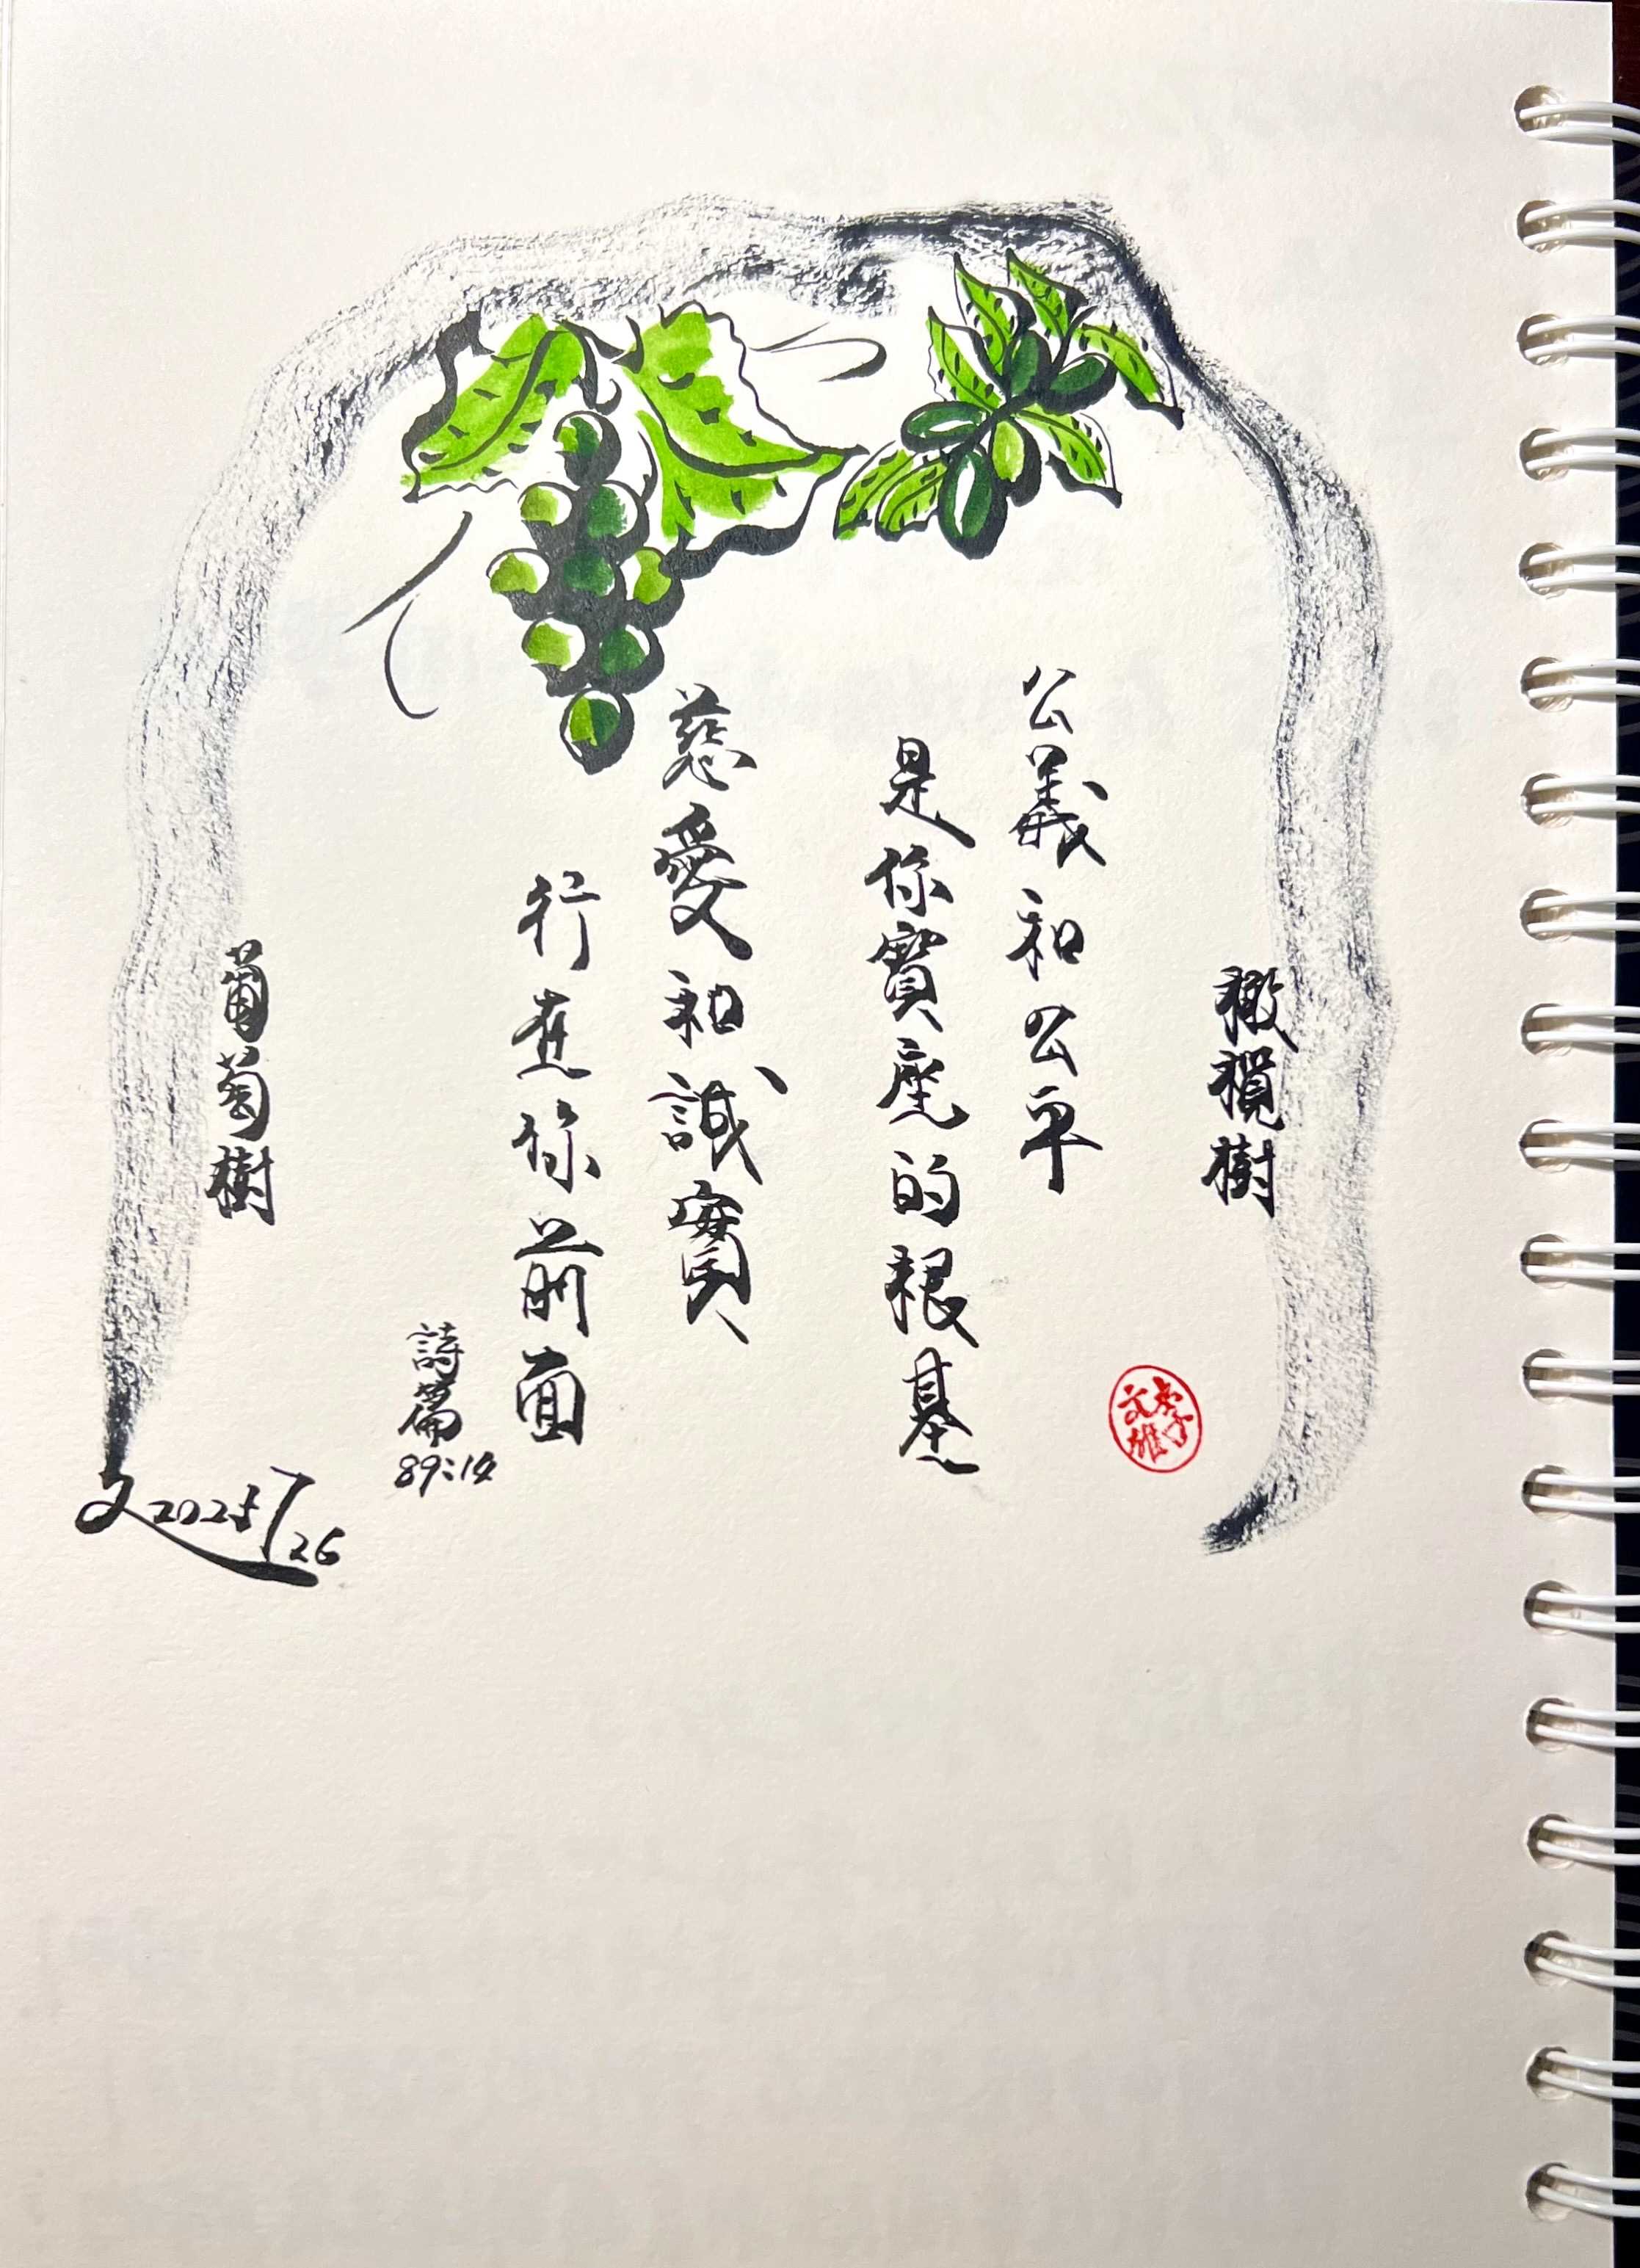 橄欖樹
公義和公平
是你寶座的根基
慈愛和誠實
行在你前面
詩篇
89:14
葡萄樹
文2025 7/26
李文雄